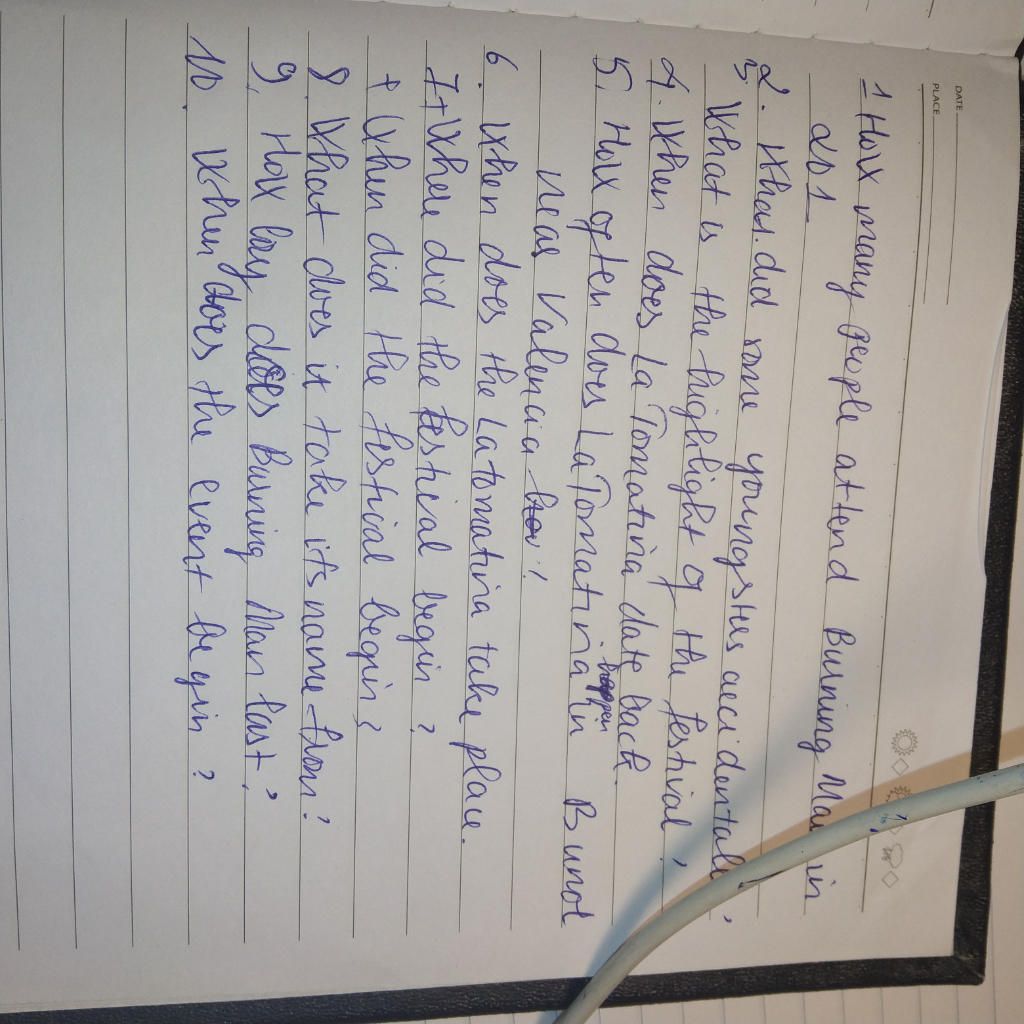 DATE
PLACE
1 How many people attend Burning Man in
201
2. What did some youngsters accidentall
3. What is the highlight of the festival?
4. When does La Tomatina date back.
5. How often does La Tomatina happen in Bunol
near Valencia
6. When does the La tomatina take place.
7+ Where did the festical begin?
+ When did the festical begin?
8. What does it take its name from?
9. How long does Burning Man last?
10. When does the event begin?